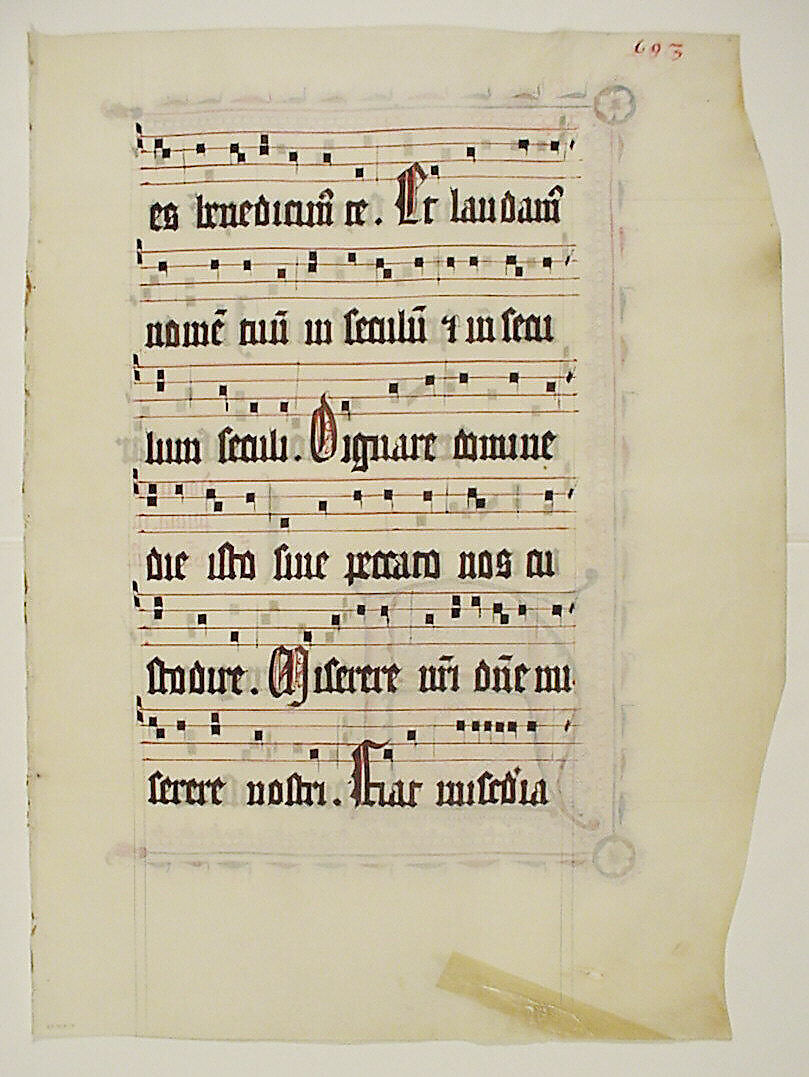 693
es benedicim̃ te. Et laudam̃
nomē tuū in seculū ⁊ in secu
lum seculi. Dignare domine
die isto sine peccato nos cu
stodire. Miserere nr̄i dn̄e mi
serere nostri. Fiat misc̄dia